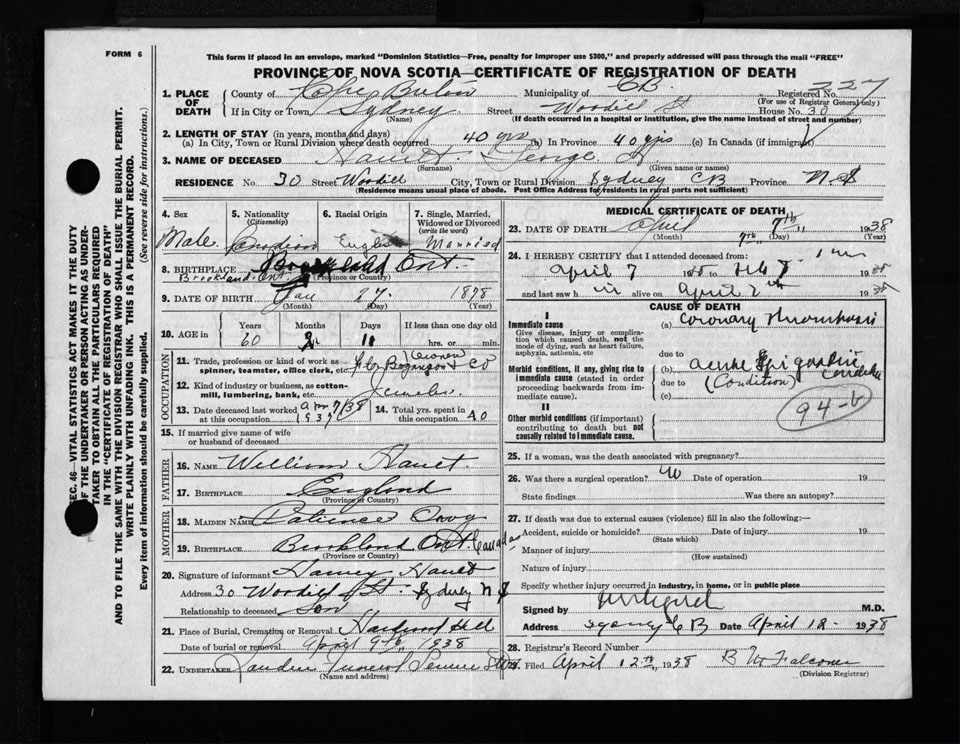 FORM 6
This form if placed in an envelope, marked "Dominion Statistics—Free, penalty for improper use $300," and properly addressed will pass through the mail "FREE"
PROVINCE OF NOVA SCOTIA—CERTIFICATE OF REGISTRATION OF DEATH
1. PLACE OF DEATH County of Cape Breton Municipality of C.B. Registered No. 727
(For use of Registrar General only)
If in City or Town Sydney Street Woodill St House No. 30
(Name) (If death occurred in a hospital or institution, give the name instead of street and number)
2. LENGTH OF STAY (in years, months and days)
(a) In City, Town or Rural Division where death occurred 40 yrs (b) In Province 40 yrs (c) In Canada (if immigrant)
3. NAME OF DECEASED George
(Surname) (Given name or names)
RESIDENCE No. 30 Street Woodill City, Town or Rural Division Sydney CB Province N.S
(Residence means usual place of abode. Post Office Address for residents in rural parts not sufficient)
4. Sex Male
5. Nationality (Citizenship) Canadian
6. Racial Origin English
7. Single, Married, Widowed or Divorced (write the word) Married
8. BIRTHPLACE Ont.
(Province or Country)
9. DATE OF BIRTH Jan 27. 1878
(Month) (Day) (Year)
10. AGE in Years 60 Months 2 Days 11 If less than one day old hrs. or min.
OCCUPATION
11. Trade, profession or kind of work as spinner, teamster, office clerk, etc.
12. Kind of industry or business, as cotton-mill, lumbering, bank, etc.
13. Date deceased last worked at this occupation
14. Total yrs. spent in this occupation 40
15. If married give name of wife or husband of deceased
FATHER
16. NAME William
17. BIRTHPLACE England
(Province or Country)
MOTHER
18. MAIDEN NAME Patience
19. BIRTHPLACE Ont Canada
(Province or Country)
20. Signature of informant
Address 30 Woodill St. Sydney N S
Relationship to deceased Son
21. Place of Burial, Cremation or Removal Hardwood Hill
Date of burial or removal April 9th, 1938
22. UNDERTAKER Funeral Service
(Name and address)
MEDICAL CERTIFICATE OF DEATH
23. DATE OF DEATH April 7th 1938
(Month) (Day) (Year)
24. I HEREBY CERTIFY that I attended deceased from:
April 7 to 19
and last saw h im alive on April 19
CAUSE OF DEATH
I
Immediate cause
Give disease, injury or complication which caused death, not the mode of dying, such as heart failure, asphyxia, asthenia, etc
(a) Coronary Thrombosis
due to
Morbid conditions, if any, giving rise to immediate cause (stated in order proceeding backwards from immediate cause)
(b) acute
due to (Condition)
(c)
94-b
II
Other morbid conditions (if important) contributing to death but not causally related to immediate cause.
25. If a woman, was the death associated with pregnancy?
26. Was there a surgical operation? Date of operation 19
State findings Was there an autopsy?
27. If death was due to external causes (violence) fill in also the following:—
Accident, suicide or homicide? Date of injury 19
(State which)
Manner of injury
(How sustained)
Nature of injury
Specify whether injury occurred in industry, in home, or in public place
Signed by M.D.
Address Sydney C B Date April 12 - 1938
28. Registrar's Record Number
29. Filed April 12th 1938 Falconer
(Division Registrar)
SEC. 46—VITAL STATISTICS ACT MAKES IT THE DUTY
OF THE UNDERTAKER OR PERSON ACTING AS UNDER-
TAKER TO OBTAIN ALL THE PARTICULARS REQUIRED
IN THE "CERTIFICATE OF REGISTRATION OF DEATH"
AND TO FILE THE SAME WITH THE DIVISION REGISTRAR WHO SHALL ISSUE THE BURIAL PERMIT.
WRITE PLAINLY WITH UNFADING INK. THIS IS A PERMANENT RECORD.
Every item of information should be carefully supplied. (See reverse side for instructions.)